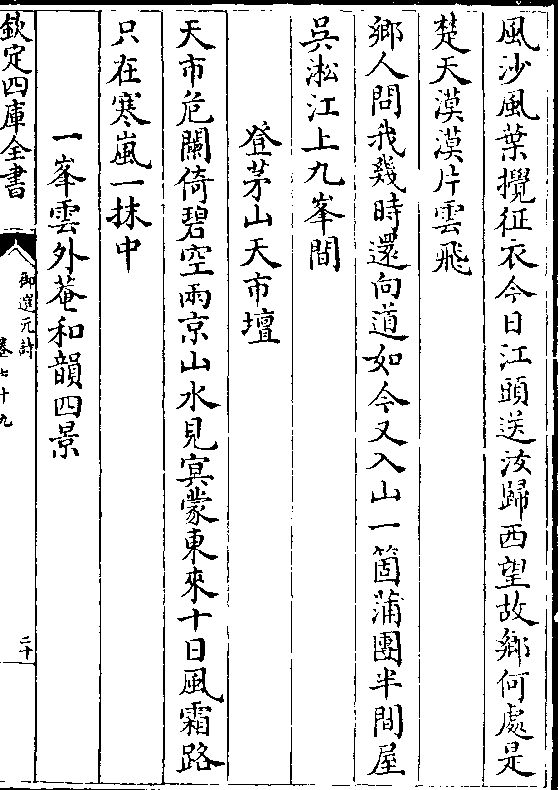 風沙風葉攪征衣今日江頭送汝歸西望故鄉何處是
楚天漠漠片雲飛
鄉人問我幾時還向道如今又入山一箇蒲團半間屋
吳淞江上九峯間
登茅山天市壇
天市危闌倚碧空兩京山水見冥蒙東來十日風霜路
只在寒嵐一抹中
一峯雲外菴和韻四景
欽定四庫全書
御選元詩
卷七十九
二十